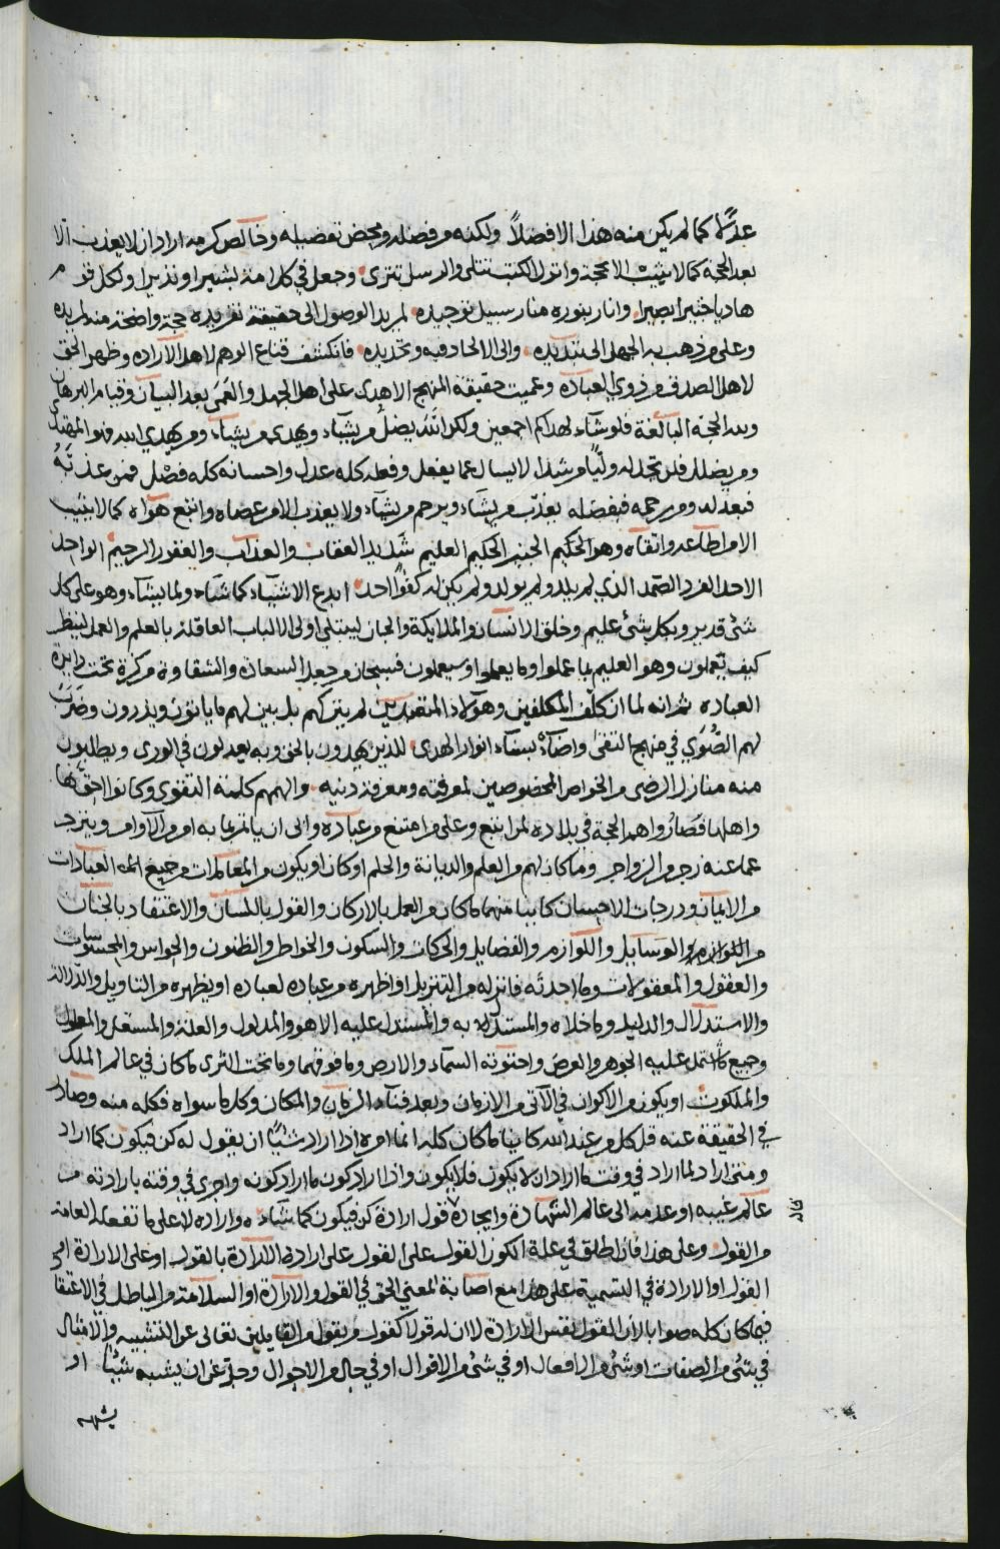 عدلًا كما لم يكن منه هذا الا فضلاً ولكنه من فضله ومحض تفضيله وخالص كرمه اراد ان لا يعذب الا
بعد الحجة كما لا يثيب الا عن حجة وانزل الكتب تتلى والرسل تترى وجعل في كل امة بشيرا ونذيرا ولكل قوم
هاديا خبيرا بصيرا وانار بنوره منار سبيل توحيده لمريد الوصول الى حقيقة تفريده حجة واضحة منه لمريده
وعلى من ذهب به الجهل الى تنديده والى الالحاد فيه وتحديده فانكشف قناع الوهم لاهل الارادة وظهر الحق
لاهل الصدق من ذوي العبادة وعميت حقيقة المنهج الاهدى على اهل الجهل والعمى بعد البيان وقيام البرهان
ولله الحجة البالغة فلو شاء لهداكم اجمعين ولكن الله يضل من يشاء ويهدي من يشاء ومن يهدي الله فهو المهتد
ومن يضلل فلن تجد له وليًا مرشدا لا يسال عما يفعل وفعله كله عدل واحسانه كله فضل فمن عذبه
فبعدله ومن رحمه فبفضله يعذب من يشاء ويرحم من يشاء ولا يعذب الا من عصاه واتبع هواه كما لا يثيب
الا من اطاعه واتقاه وهو الحكيم الخبير الحكيم العليم شديد العقاب والعذاب والغفور الرحيم الواحد
الاحد الفرد الصمد الذي لم يلد ولم يولد ولم يكن له كفوًا احد ابدع الاشياء كما شاء ولما يشاء وهو على كل
شئ قدير وبكل شئ عليم وخلق الانسان والملايكة والجان ليبتلي اولى الالباب العاقلة بالعلم والعمل لينظر
كيف تعملون وهو العليم بما عملوا وما يعملوا وسيعملون فسبحان من جعل السعادة والشقاوة مركزة تحت دايرة
العباده ثم انه لما ان كلف المكلفين وهؤلاء المتعبدين لم يتركهم بل بين لهم ما ياتون ويذرون وضرب
لهم الصُّوَى في منهج التقى واضاءه بسناء انوار الهدى للذين يهدون بالحق وبه يعدلون في الورى ويطلبون
منه منازل الرضى من الخواص المخصوصين لمعرفته ومعرفة دينه والهمهم كلمة التقوى وكانوا احق بها
واهلها فصاروا هم الحجة في بلاده لمن اتبع وعلى من امتنع من عباده وابى ان ياتمر بما به امر من الاوامر وينزجر
عما عنه زجر من الزواجر وما كان لهم من العلم والديانة والحلم او كان او يكون من المعاملات وجميع العبادات
من الايمان ودرجات الاحسان كاينا منهما ما كان من العمل بالاركان والقول باللسان والاعتقاد بالجنان
والوسايل واللوازم والفضايل والحركات والسكون والخواطر والظنون والحواس والمحسوسات
والعقول والمعقولات وما احدثه فانزله من التنزيل او اظهره من عباده لعباده او يظهره من التاويل والدلالة
والاستدلال والدليل وما خلاه والمستدل به والمستدل عليه الا هو والمدلول والعلة والمعلول
وجميع ما اشتمل عليه الجوهر والعرض واحتوته السماء والارض وما فوقهما وما تحت الثرى ما كان في عالم الملك
والملكوت او يكون من الاكوان في الآتي من الازمان وبعد فناء الزمان والمكان وكل ما سواه فكله منه وصادر
في الحقيقة عنه قل كل من عند الله كاينا ما كان كله انما امره اذا اراد شيًا ان يقول له كن فيكون كما اراد
ومتى اراد لما اراد في وقت ما اراد ان لا يكون فلا يكون واذا اراد كون ما اراد كونه واجرى في وقته بارادته من
عالم غيبه او عدمه الى عالم الشهادة وايجاده قول ارادة كن فيكون كما شاءه واراده لا على ما تفعله العامة
من القول وعلى هذا فان اطلق في علة الكون القول على القول على ارادة الارادة بالقول او على الارادة او
القول او الارادة في التسمية على هذا مع اصابة لمعنى الحق في القول والارادة او السلامة من الباطل في الاعتقاد
فيما كان كله صوابا لان القول نفس الارادة لا ان له قولا كقول من يقول من القايلين تعالى عن التشبيه والامثال
في شئ من الصفات او شئ من الافعال او في شئ من الاقوال او في حال من الاحوال وجل عن ان يشبه شيئًا او
يشبهه